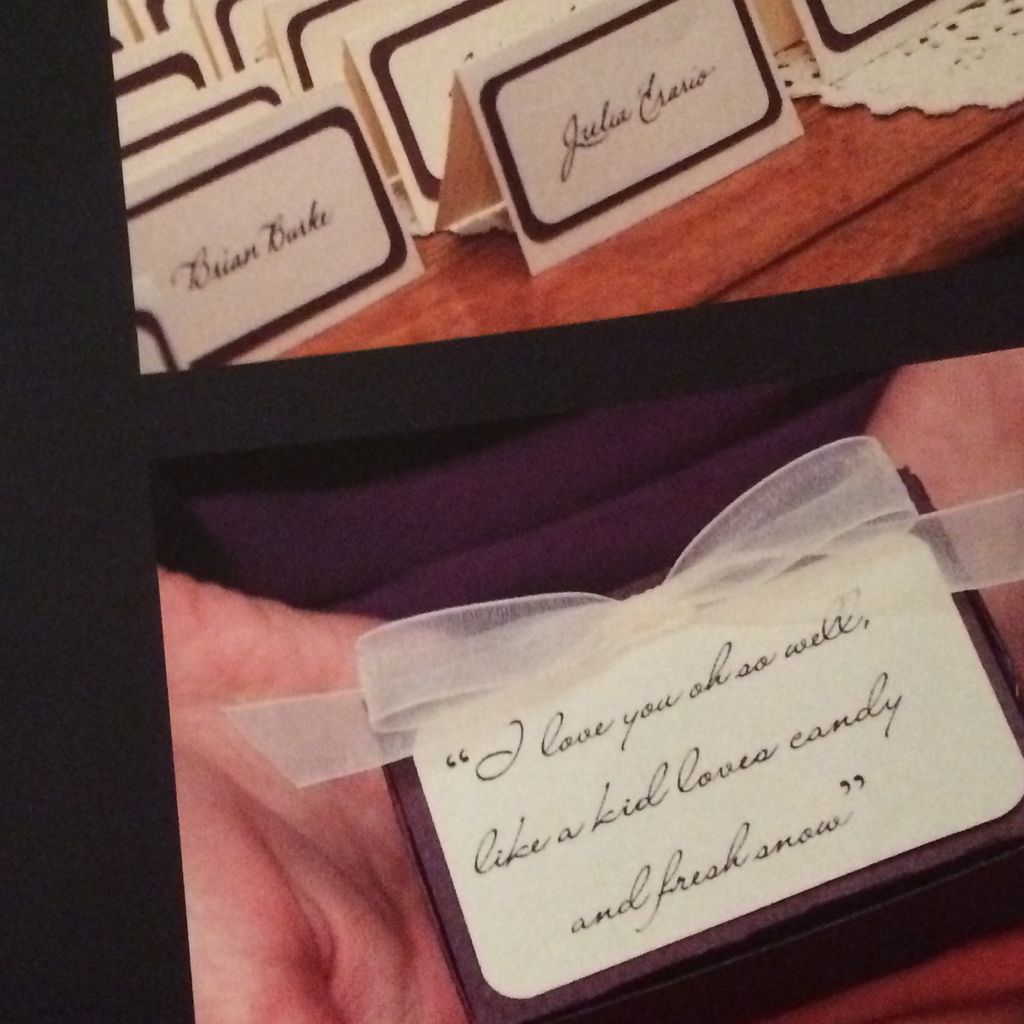 Julia Erario
Brian Burke
"I love you oh so well,
like a kid loves candy
and fresh snow"